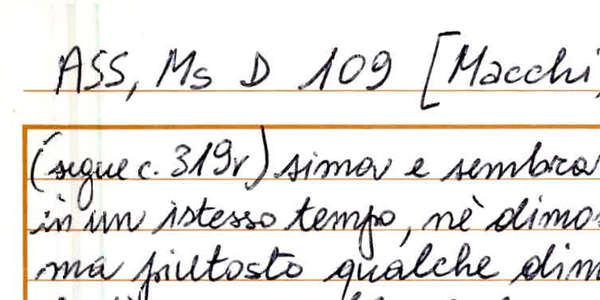 ASS, Ms D 109 [Macchi,
(segue c. 319r) sima e sembra
in un istesso tempo, nè dimo
ma piutosto qualche dim